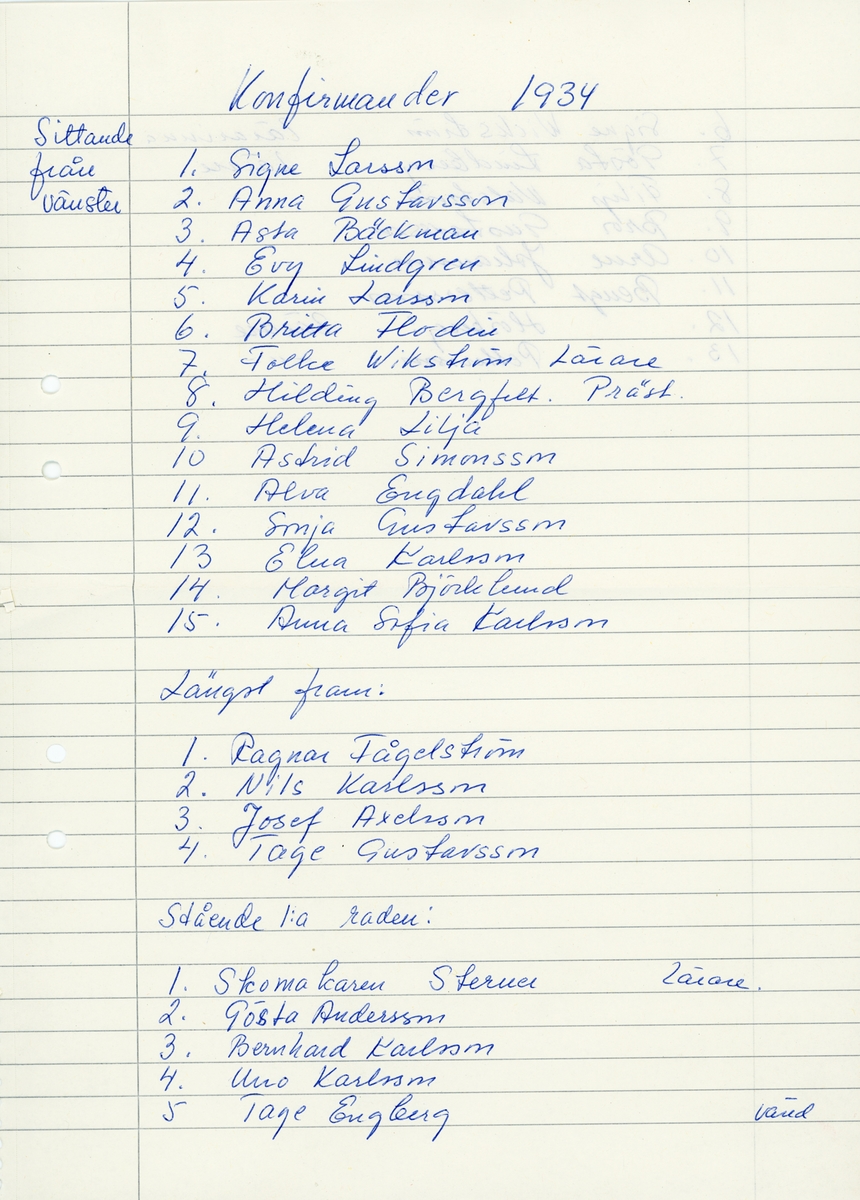 Konfirmander 1934
Sittande
från
vänster
1. Signe Larsson
2. Anna Gustavsson
3. Asta Bäckman
4. Evy Lindgren
5. Karin Larsson
6. Britta Flodin
7. Folke Wikström Lärare
8. Hilding Bergfelt. Präst.
9. Helena Lilja
10 Astrid Simonsson
11. Alva Engdahl
12. Sonja Gustavsson
13 Elna Karlsson
14. Margit Björklund
15. Anna Sofia Karlsson
Längst fram:
1. Ragnar Fågelström
2. Nils Karlsson
3. Josef Axelsson
4. Tage Gustavsson
Stående 1:a raden:
1. Skomakaren Sterner Lärare.
2. Gösta Andersson
3. Bernhard Karlsson
4. Uno Karlsson
5 Tage Engberg
vänd